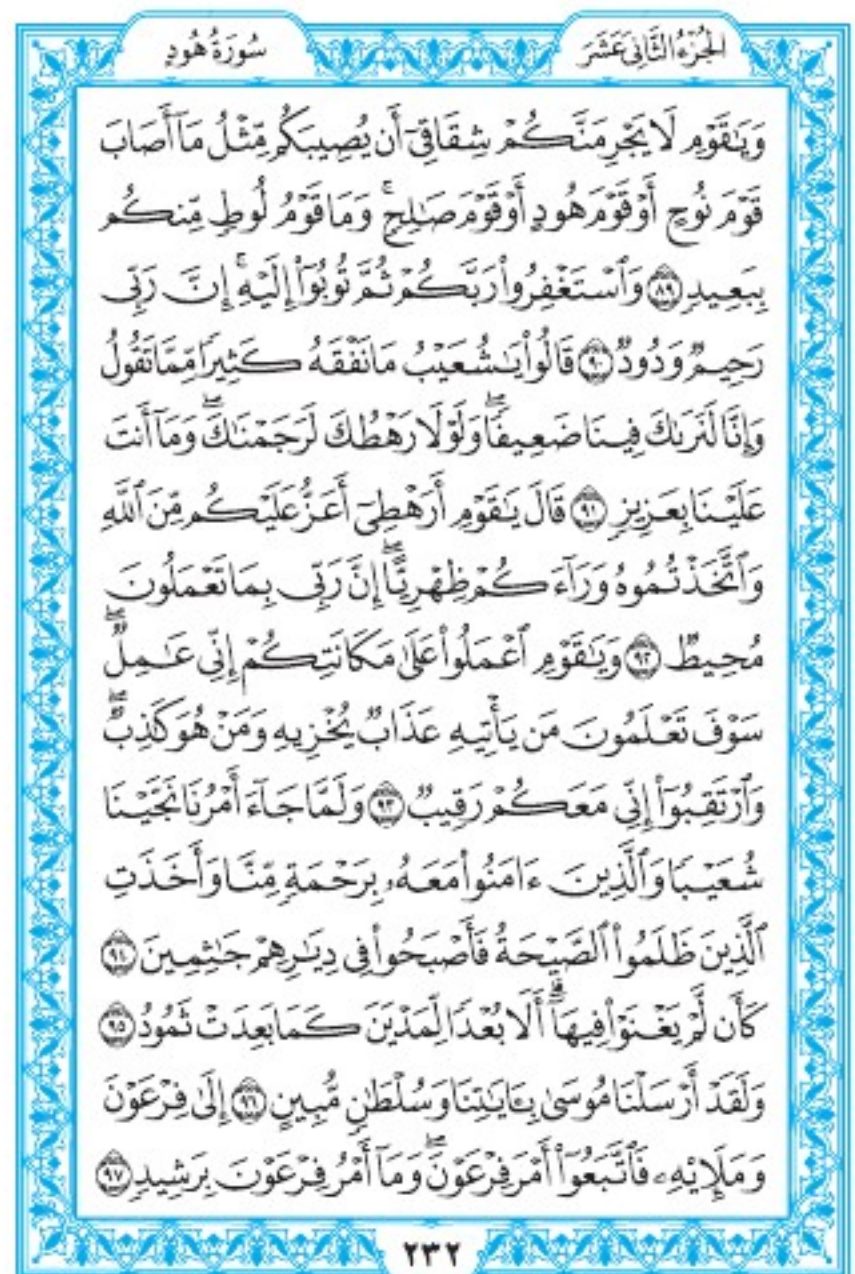 الجُزْءُ الثَّانِي عَشَرَ
سُورَةُ هُودٍ
وَيَٰقَوْمِ لَا يَجْرِمَنَّكُمْ شِقَاقِىٓ أَن يُصِيبَكُم مِّثْلُ مَآ أَصَابَ
قَوْمَ نُوحٍ أَوْ قَوْمَ هُودٍ أَوْ قَوْمَ صَٰلِحٍۚ وَمَا قَوْمُ لُوطٍ مِّنكُم
بِبَعِيدٍ ٨٩ وَٱسْتَغْفِرُوا۟ رَبَّكُمْ ثُمَّ تُوبُوٓا۟ إِلَيْهِۚ إِنَّ رَبِّى
رَحِيمٌ وَدُودٌ ٩٠ قَالُوا۟ يَٰشُعَيْبُ مَا نَفْقَهُ كَثِيرًا مِّمَّا تَقُولُ
وَإِنَّا لَنَرَىٰكَ فِينَا ضَعِيفًاۖ وَلَوْلَا رَهْطُكَ لَرَجَمْنَٰكَۖ وَمَآ أَنتَ
عَلَيْنَا بِعَزِيزٍ ٩١ قَالَ يَٰقَوْمِ أَرَهْطِىٓ أَعَزُّ عَلَيْكُم مِّنَ ٱللَّهِ
وَٱتَّخَذْتُمُوهُ وَرَآءَكُمْ ظِهْرِيًّاۖ إِنَّ رَبِّى بِمَا تَعْمَلُونَ
مُحِيطٌ ٩٢ وَيَٰقَوْمِ ٱعْمَلُوا۟ عَلَىٰ مَكَانَتِكُمْ إِنِّى عَٰمِلٌۖ
سَوْفَ تَعْلَمُونَ مَن يَأْتِيهِ عَذَابٌ يُخْزِيهِ وَمَنْ هُوَ كَٰذِبٌۖ
وَٱرْتَقِبُوٓا۟ إِنِّى مَعَكُمْ رَقِيبٌ ٩٣ وَلَمَّا جَآءَ أَمْرُنَا نَجَّيْنَا
شُعَيْبًا وَٱلَّذِينَ ءَامَنُوا۟ مَعَهُۥ بِرَحْمَةٍ مِّنَّا وَأَخَذَتِ
ٱلَّذِينَ ظَلَمُوا۟ ٱلصَّيْحَةُ فَأَصْبَحُوا۟ فِى دِيَٰرِهِمْ جَٰثِمِينَ ٩٤
كَأَن لَّمْ يَغْنَوْا۟ فِيهَآۗ أَلَا بُعْدًا لِّمَدْيَنَ كَمَا بَعِدَتْ ثَمُودُ ٩٥
وَلَقَدْ أَرْسَلْنَا مُوسَىٰ بِـَٔايَٰتِنَا وَسُلْطَٰنٍ مُّبِينٍ ٩٦ إِلَىٰ فِرْعَوْنَ
وَمَلَإِي۟هِۦ فَٱتَّبَعُوٓا۟ أَمْرَ فِرْعَوْنَۖ وَمَآ أَمْرُ فِرْعَوْنَ بِرَشِيدٍ ٩٧
٢٣٢